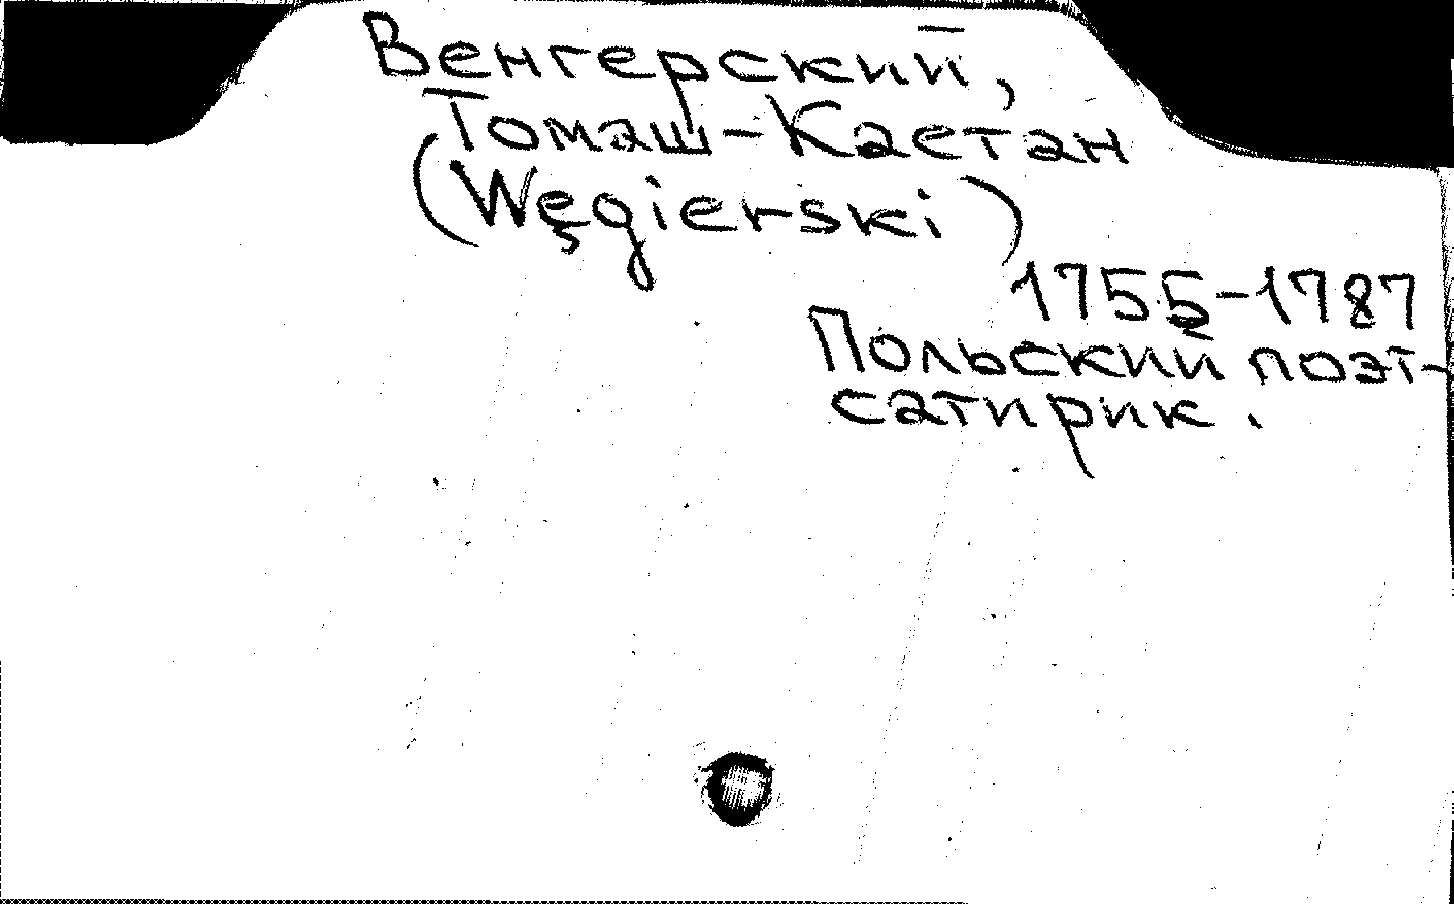 Венгерский,
Томаш-Каетан
(Węgierski)
1755-1787
Польский поэт-
сатирик.